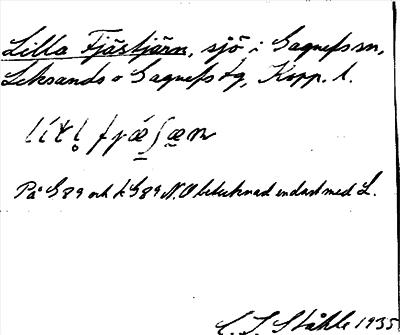 Lilla Fjästjärn, sjö i Gagnefs sn,
Leksands o Gagnefs tg, Kopp. l.
På G 89 och k G 89 N.O betecknad endast med L.
C. I. Ståhle 1935